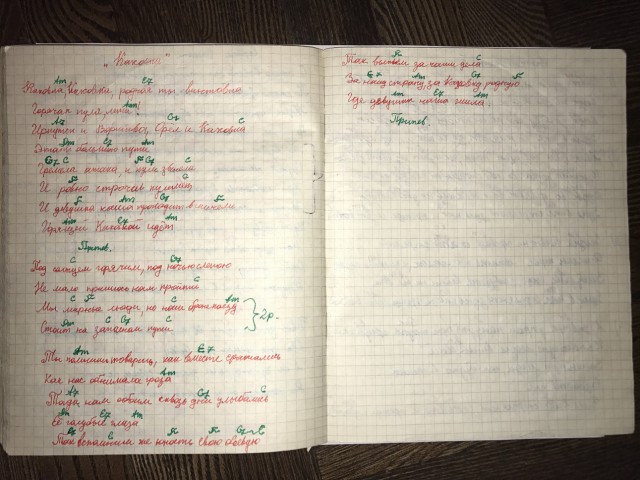 „Каховка"
Am E7
Каховка, Каховка, родная ты винтовка
Am
Горячая пуля, лети!
A7 G7 C
Иркутск и Варшава, Орел и Каховка
Am E7 Am
Этапы большого пути
G7 C F G7 C
Гремела атака, и пули звенели
F C
И ровно строчил пулемёт
F Am G7 F
И девушка наша проходит в шинели
Am E7 Am
Горящей Каховкой идёт
Припев.
C E7
Под солнцем горячим, под ночью слепою
C
Не мало пришлось нам пройти
C F C Am
Мы мирные люди, но наш бронепоезд
Am C G7 C
Стоит на запасном пути
2р.
Am E7
Ты помнишь товарищ, как вместе сражались
Am
Как нас обнимала гроза
A7 G7 C
Тогда нам обоим сквозь дым улыбались
Am E7 Am
Её голубые глаза
C F F G7 C
Так вспомним же юность свою боевую
F C
Так выпьем за наши дела
G7 Am G7 F
За нашу страну, за Каховку родную
Am E7 Am
Где девушка наша жила.
Припев.